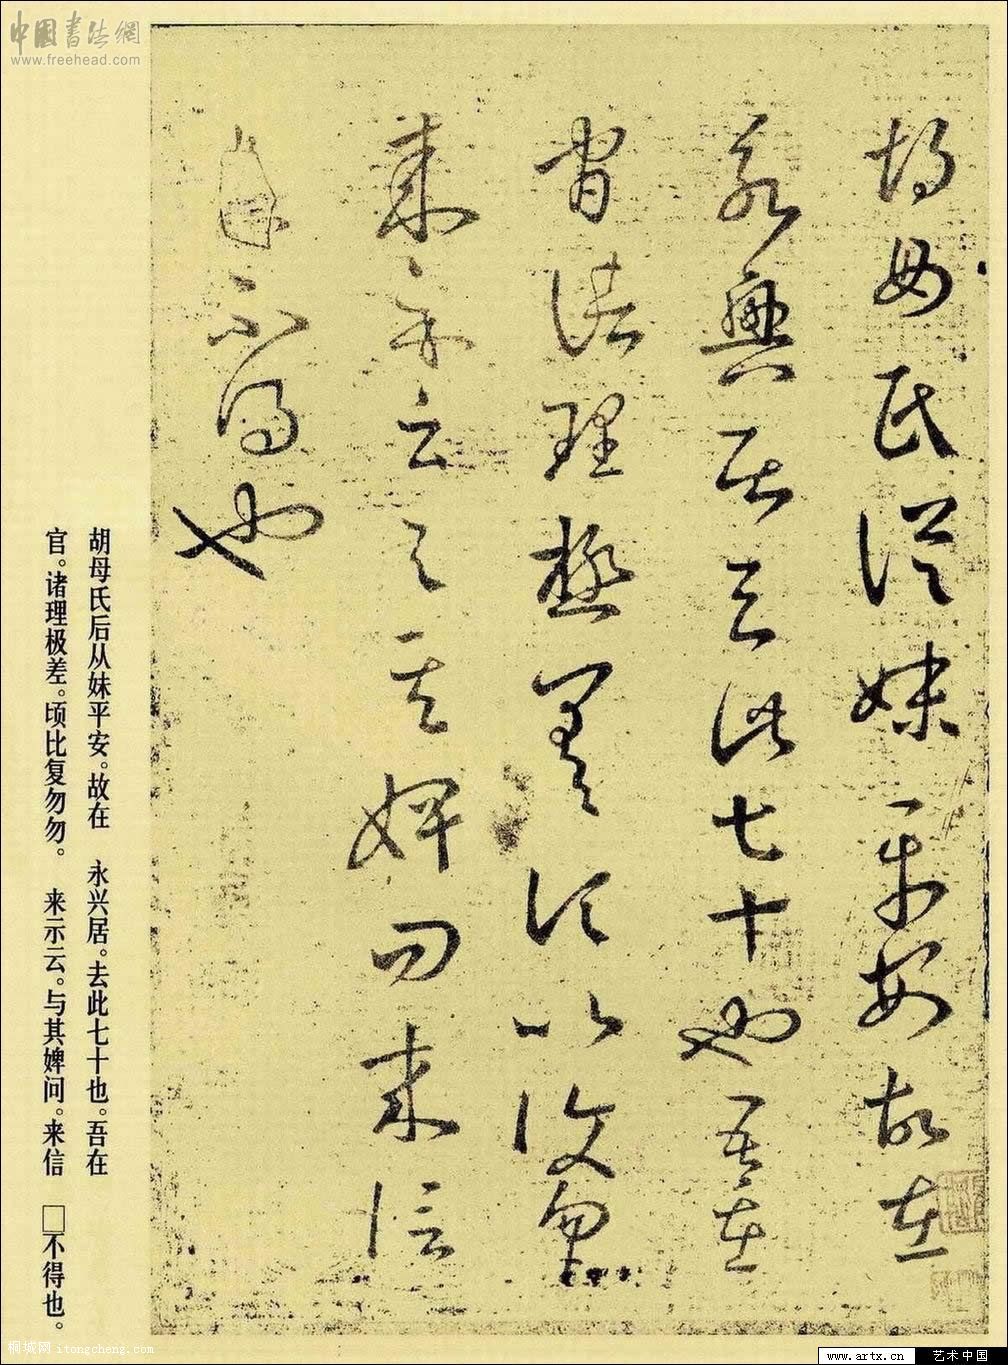 胡母氏從妹平安故在
永興居去此七十也吾在
官諸理極差頃比復勿勿
来示云与其婢问来信
不得也
胡母氏后从妹平安。故在　永兴居。去此七十也。吾在
官。诸理极差。顷比复勿勿。　来示云。与其婢问。来信　□不得也。
中国书法網
www.freehead.com
桐城网 itongcheng.com
www.artx.cn 艺术中国